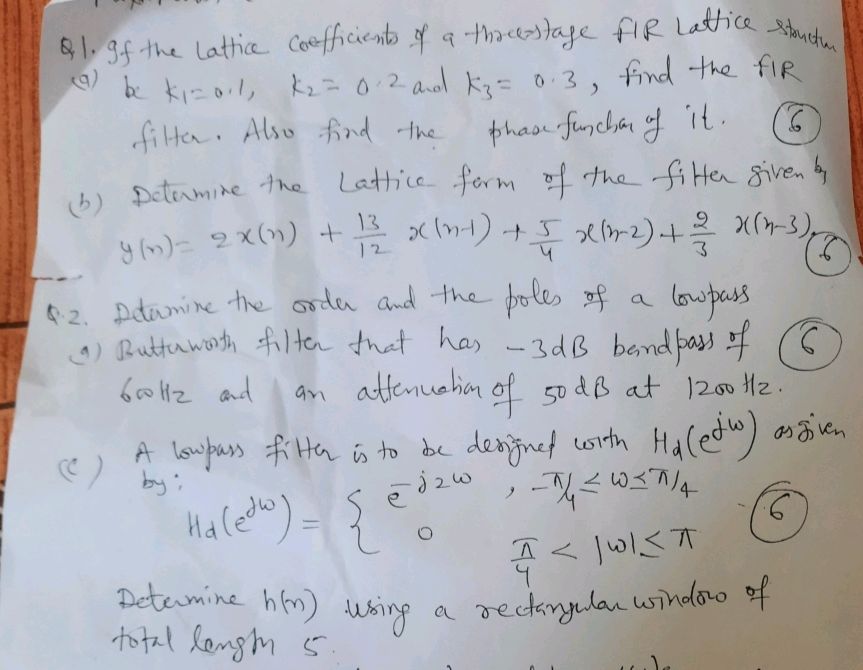 Q1. If the Lattice Coefficients of a three-stage FIR Lattice structure
(a) be k1=0.1, k2=0.2 and k3= 0.3, find the FIR
filter. Also find the phase function of it. (6)
(b) Determine the Lattice form of the filter given by
y(n)= 2x(n) + 13/12 x(n-1) + 5/4 x(n-2) + 2/3 x(n-3). (6)
Q.2. Determine the order and the poles of a lowpass
(a) Butterworth filter that has -3dB bandpass of (6)
600Hz and an attenuation of 50dB at 1200Hz.
(c) A lowpass filter is to be designed with Hd(e^jw) as given
by:
Hd(e^jw) = { e^-j2w , -π/4 ≤ w ≤ π/4
0 π/4 < |w| ≤ π (6)
Determine h(n) using a rectangular window of
total length 5.